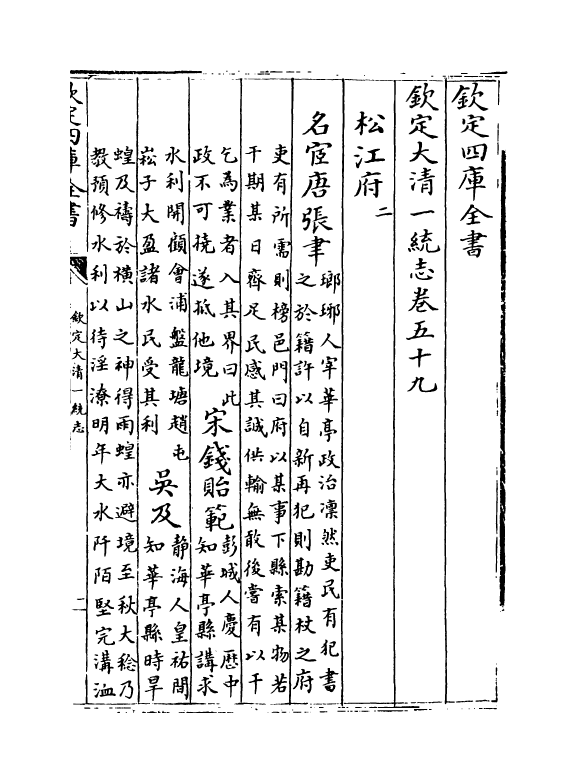 欽定四庫全書
欽定大清一統志卷五十九
松江府二
名宦唐張聿
瑯琊人宰華亭政治凜然吏民有犯書
之於籍許以自新再犯則勘籍杖之府
吏有所需則榜邑門曰府以某事下縣索某物若
干期某日齊足民感其誠供輸無敢後嘗有以干
乞為業者入其界曰此
政不可撓遂抵他境
宋錢貽範
彭城人慶歷中
知華亭縣講求
水利開顧會浦盤龍塘趙屯
崧子大盈諸水民受其利
吳及
静海人皇祐間
知華亭縣時旱
蝗及禱於橫山之神得雨蝗亦避境至秋大稔乃
教預修水利以待淫潦明年大水阡陌堅完溝洫
欽定四庫全書
欽定大清一統志
二